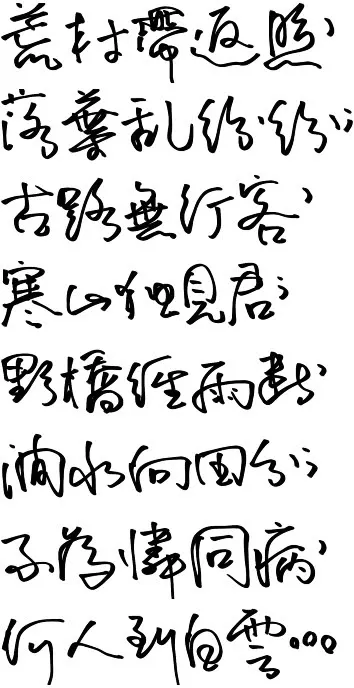 荒村帶返照，
落葉乱紛紛；
古路無行客，
寒山独見君；
野橋經雨斷，
澗水向田分；
不為憐同病，
何人到白雲。。。